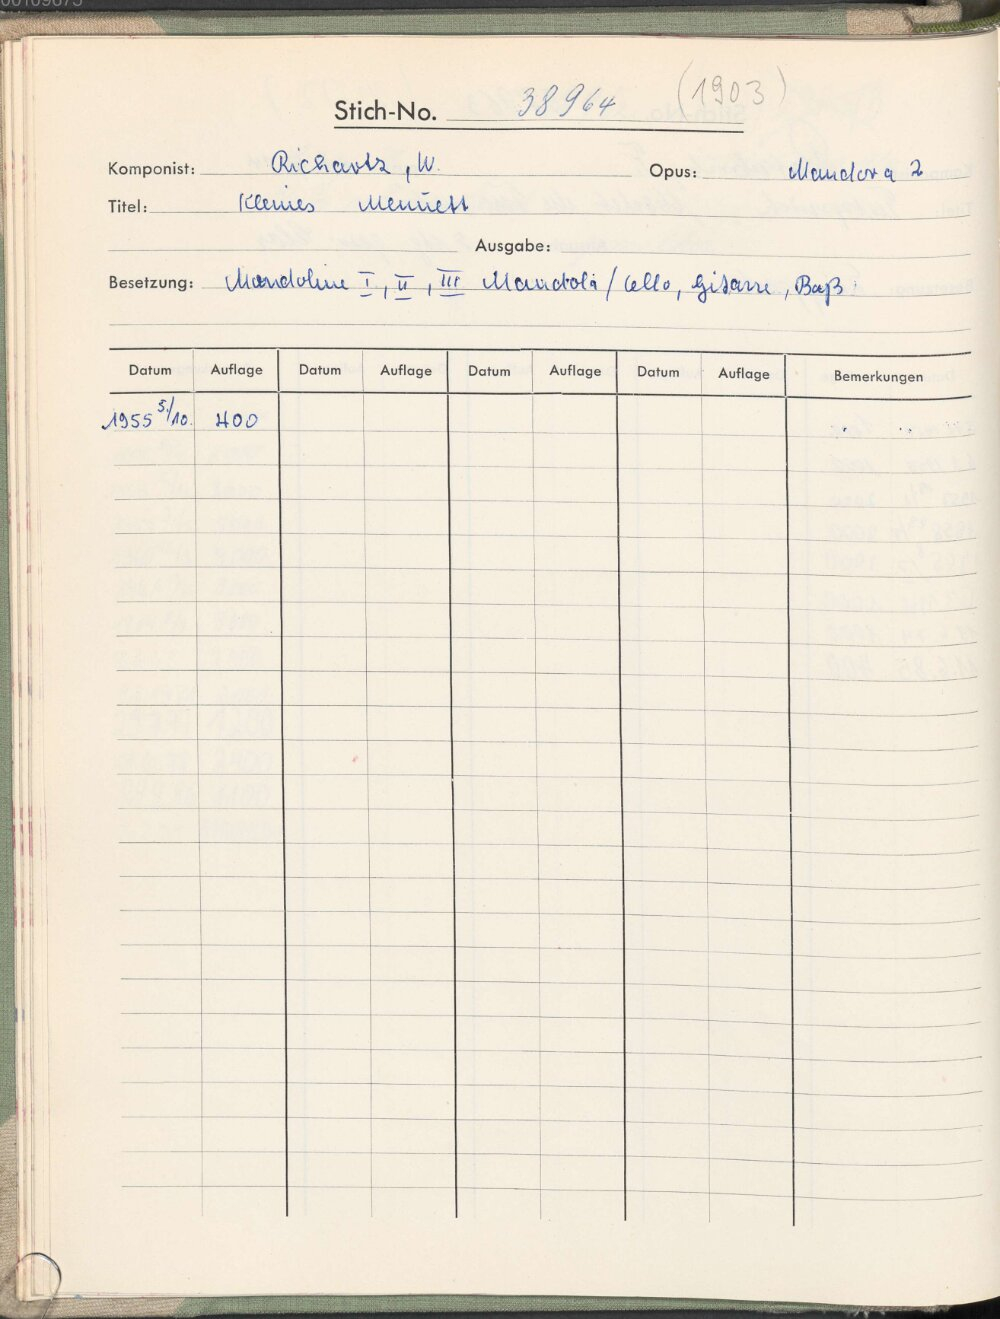 (1903)
Stich-No. 38964
Komponist: Richartz, W. Opus: Mandora 2
Titel: Kleines Menuett
Ausgabe:
Besetzung: Mandoline I, II, III Mandola / Cello, Gitarre, Baß
Datum Auflage Datum Auflage Datum Auflage Datum Auflage Bemerkungen
1955 5./10. 400